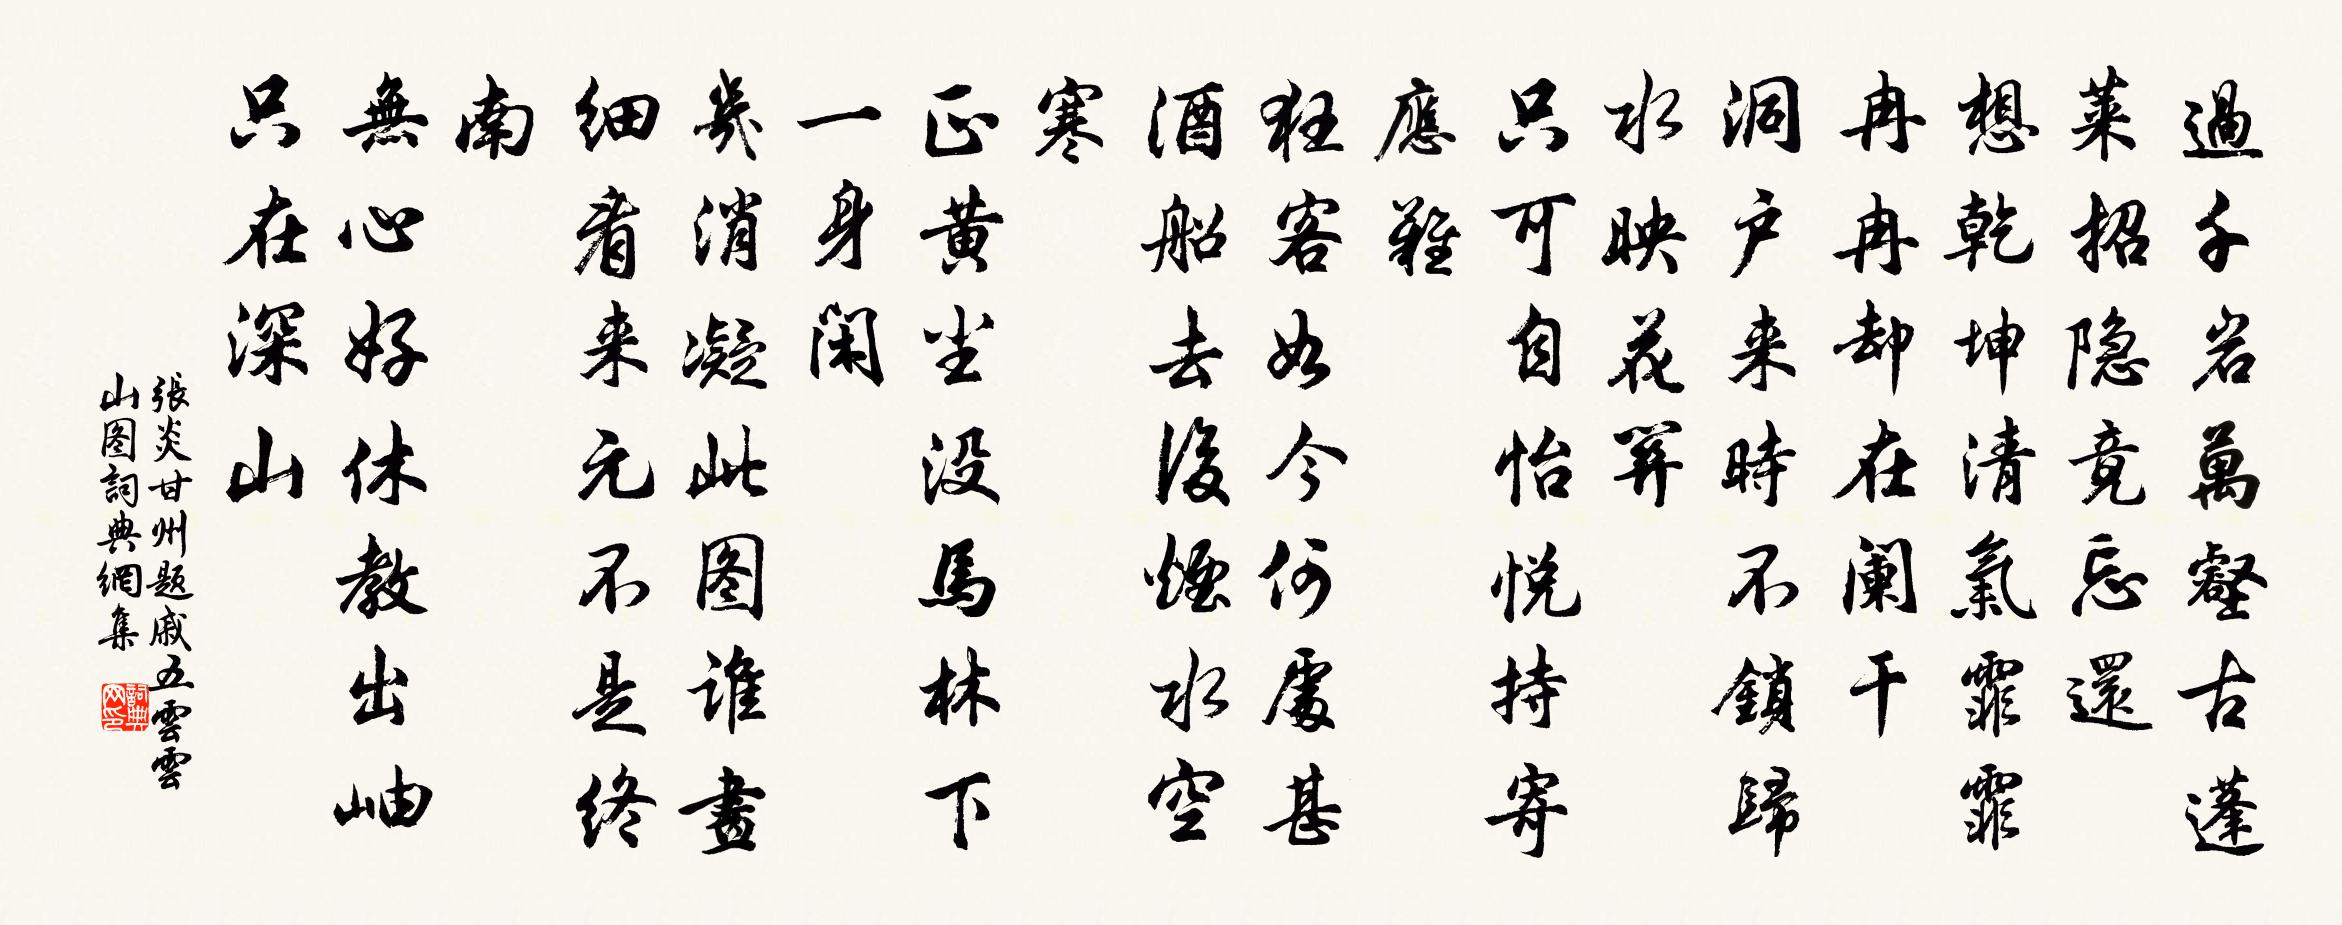 過千岩萬壑古蓬
莱招隐竟忘還
想乾坤清氣霏霏
冉冉却在阑干
洞户来時不鎖歸
水映花開
只可自怡悦持寄
應難
狂客如今何處甚
酒船去後煙水空
寒
正黄尘没馬林下
一身閑
幾消凝此图谁畫
细看来元不是终
南
無心好休教出岫
只在深山
張炎甘州题戚五雲雲
山图詞典網集
詞典网印